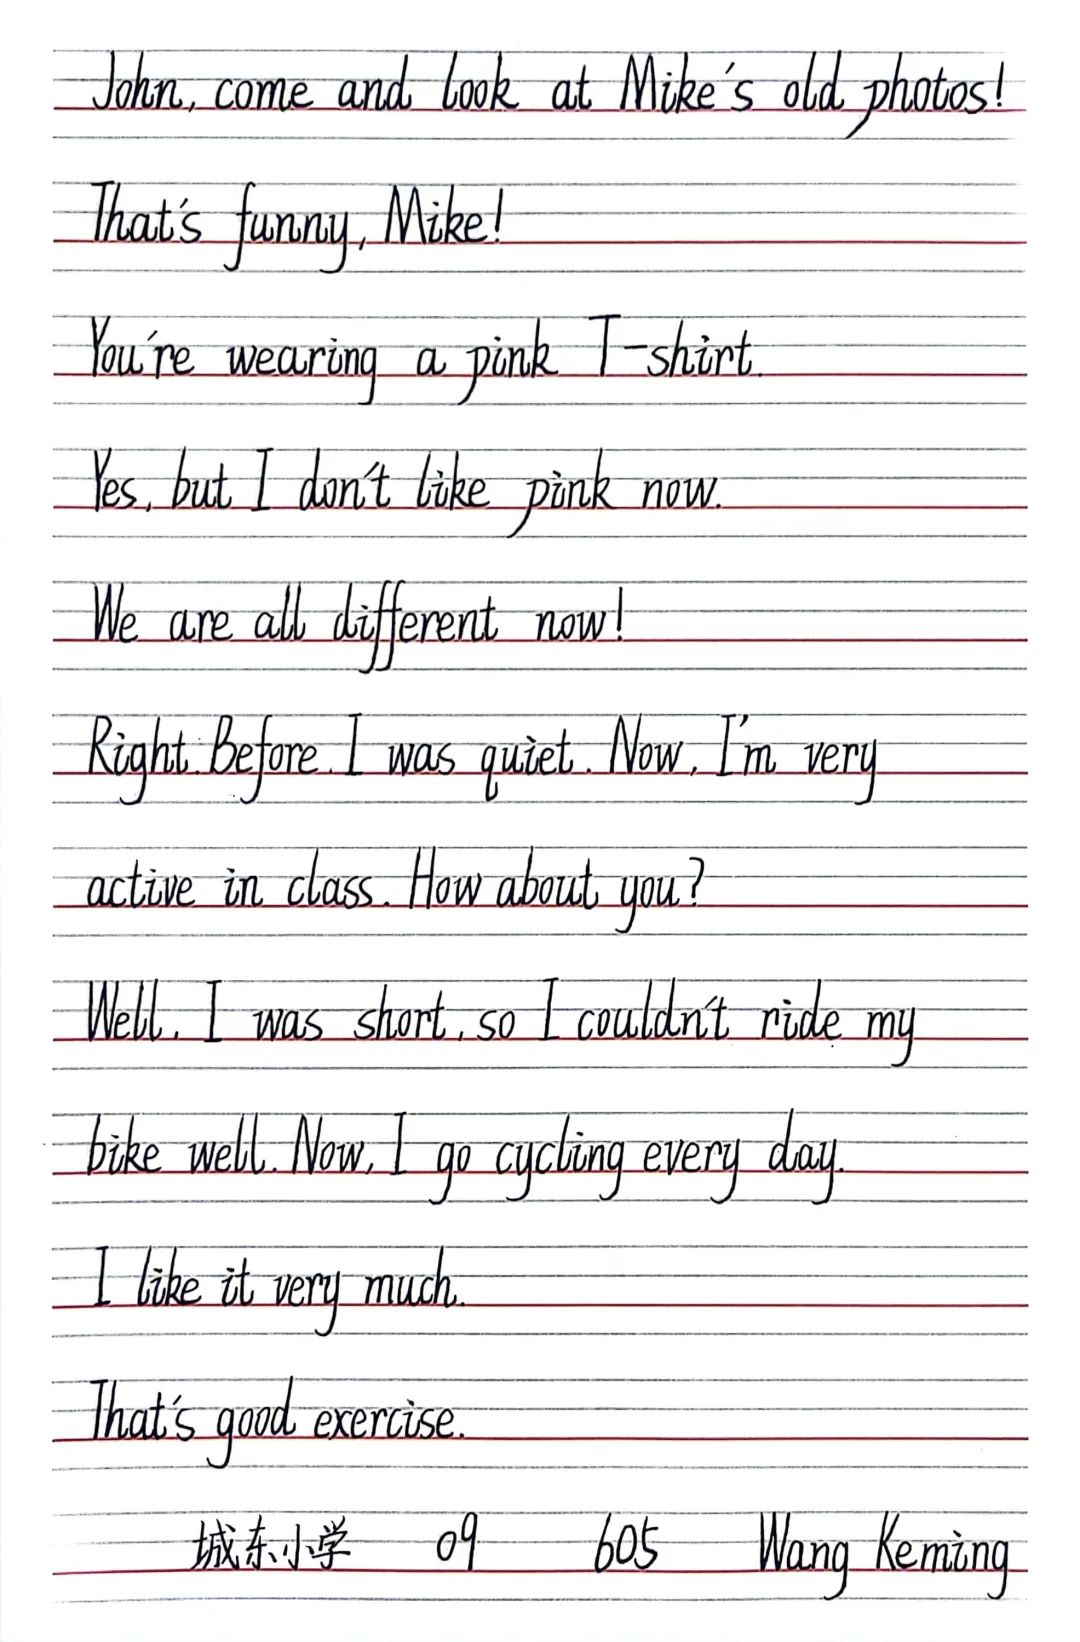 John, come and look at Mike's old photos!
That's funny, Mike!
You're wearing a pink T-shirt.
Yes, but I don't like pink now.
We are all different now!
Right. Before. I was quiet. Now, I'm very
active in class. How about you?
Well, I was short, so I couldn't ride my
bike well. Now, I go cycling every day.
I like it very much.
That's good exercise.
城东小学 09 605 Wang Keming